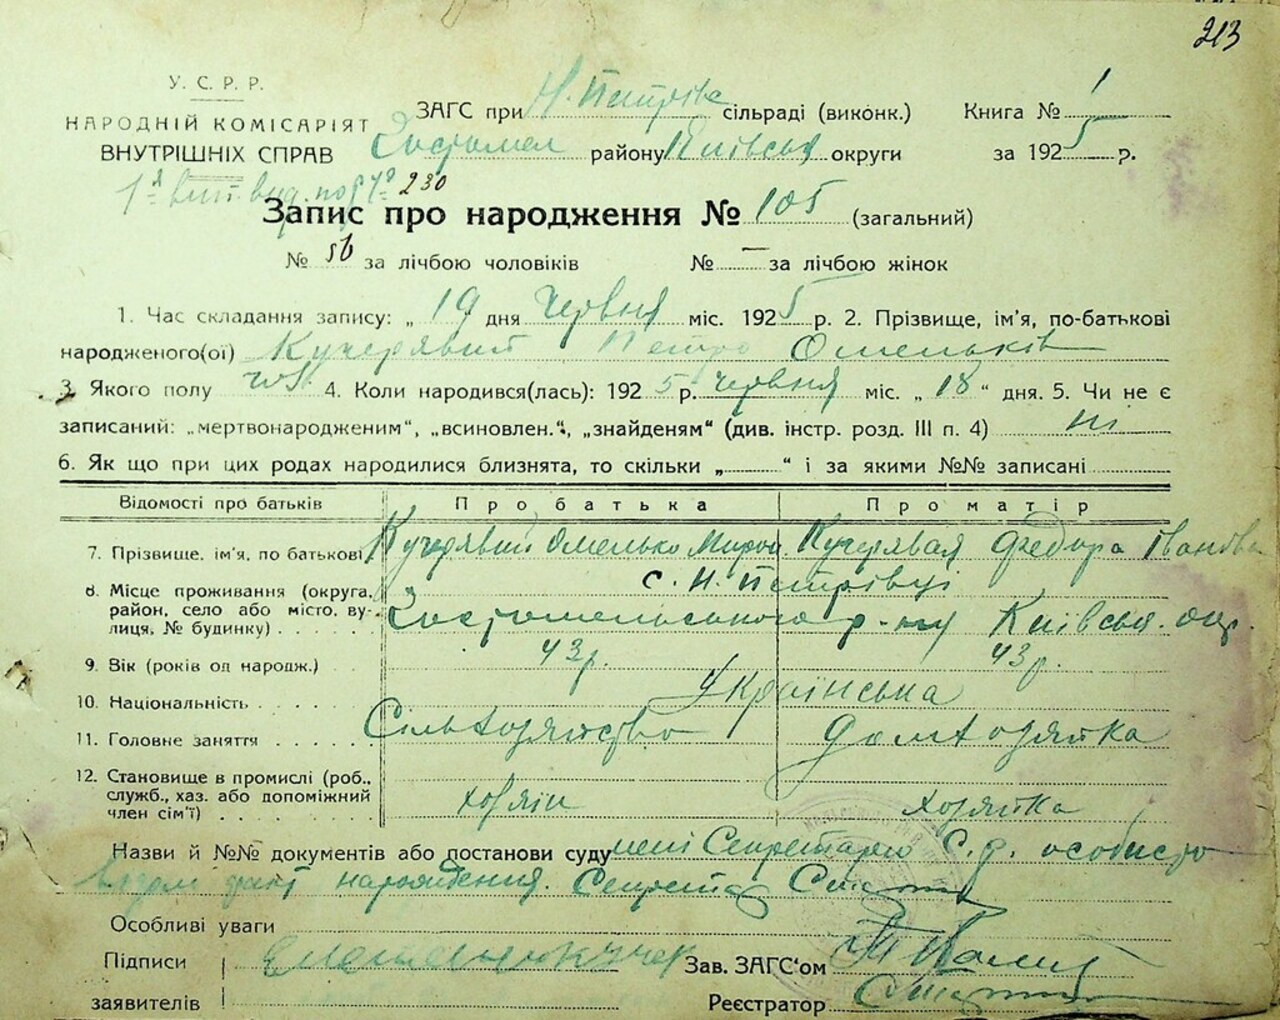 213
У. С. Р. Р.
НАРОДНІЙ КОМІСАРІЯТ
ВНУТРІШНІХ СПРАВ
ЗАГС при Н. Петрівс сільраді (виконк.) Книга № 1
Гостомел району Київськ округи за 1925 р.
230
Запис про народження № 105 (загальний)
№ 56 за лічбою чоловіків № — за лічбою жінок
1. Час складання запису: „19" дня червня міс. 1925 р. 2. Прізвище, ім'я, по-батькові
народженого(ої) Кучерявий Петро Омельків
3. Якого полу чол. 4. Коли народився(лась): 1925 р. червня міс. „18" дня. 5. Чи не є
записаний: „мертвонародженим", „всиновлен.", „знайденям" (див. інстр. розд. III п. 4) ні
6. Як що при цих родах народилися близнята, то скільки „ " і за якими №№ записані
Відомості про батьків Про батька Про матір
7. Прізвище, ім'я, по батькові Кучерявий Омелько Мирон. Кучерявая Федора Іванівн
8. Місце проживання (округа, с. Н. Петрівці
район, село або місто, ву-
лиця, № будинку) Гостомельського р-ну Київськ. окр.
9. Вік (років од народж.) 43 р. 43 р.
10. Національність Українська
11. Головне заняття Сільхозяйство домхозяйка
12. Становище в промислі (роб.,
служб., хаз. або допоміжний
член сім'ї) хозяїн хозяйка
Назви й №№ документів або постанови суду мені Секретарю С. р. особисто
відом факт народження. Секретар
Особливі уваги
Підписи
заявителів
Зав. ЗАГС'ом
Реєстратор